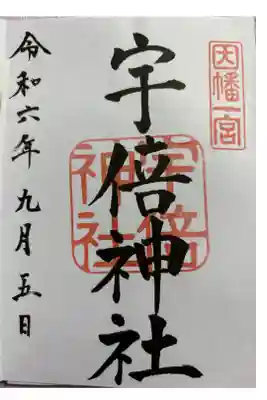 因幡一宮
宇倍神社
宇倍神社
令和六年九月五日